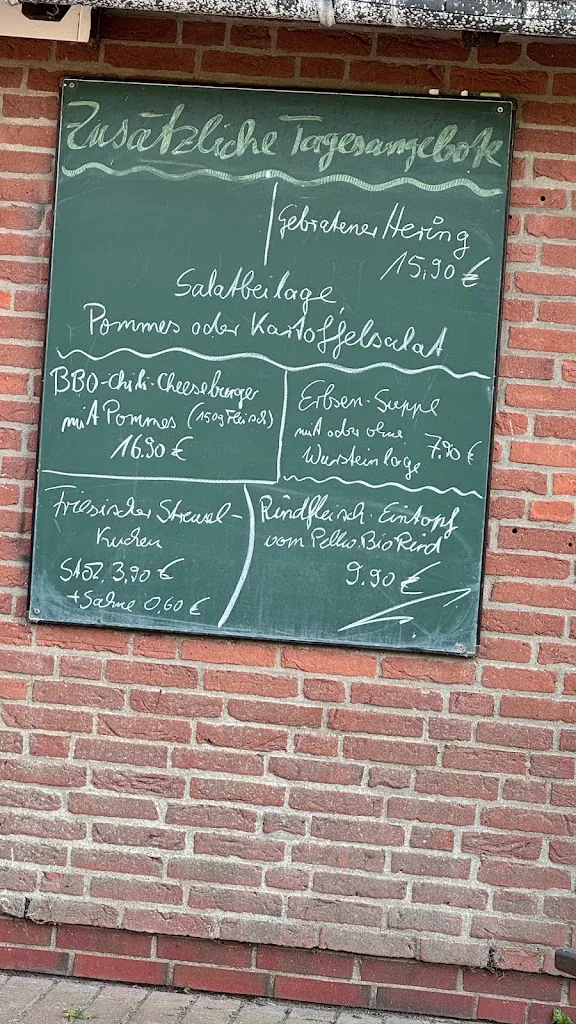 Zusätzliche Tagesangebote
Gebratener Hering
15,90 €
Salatbeilage,
Pommes oder Kartoffelsalat
BBQ-Chili-Cheeseburger
mit Pommes (150g Fleisch)
16.90 €
Erbsen-Suppe
mit oder ohne
Wursteinlage
7.90 €
Friesischer Streusel-
Kuchen
Stz. 3,90 €
+ Sahne 0,60 €
Rindfleisch-Eintopf
vom BioRind
9.90 €